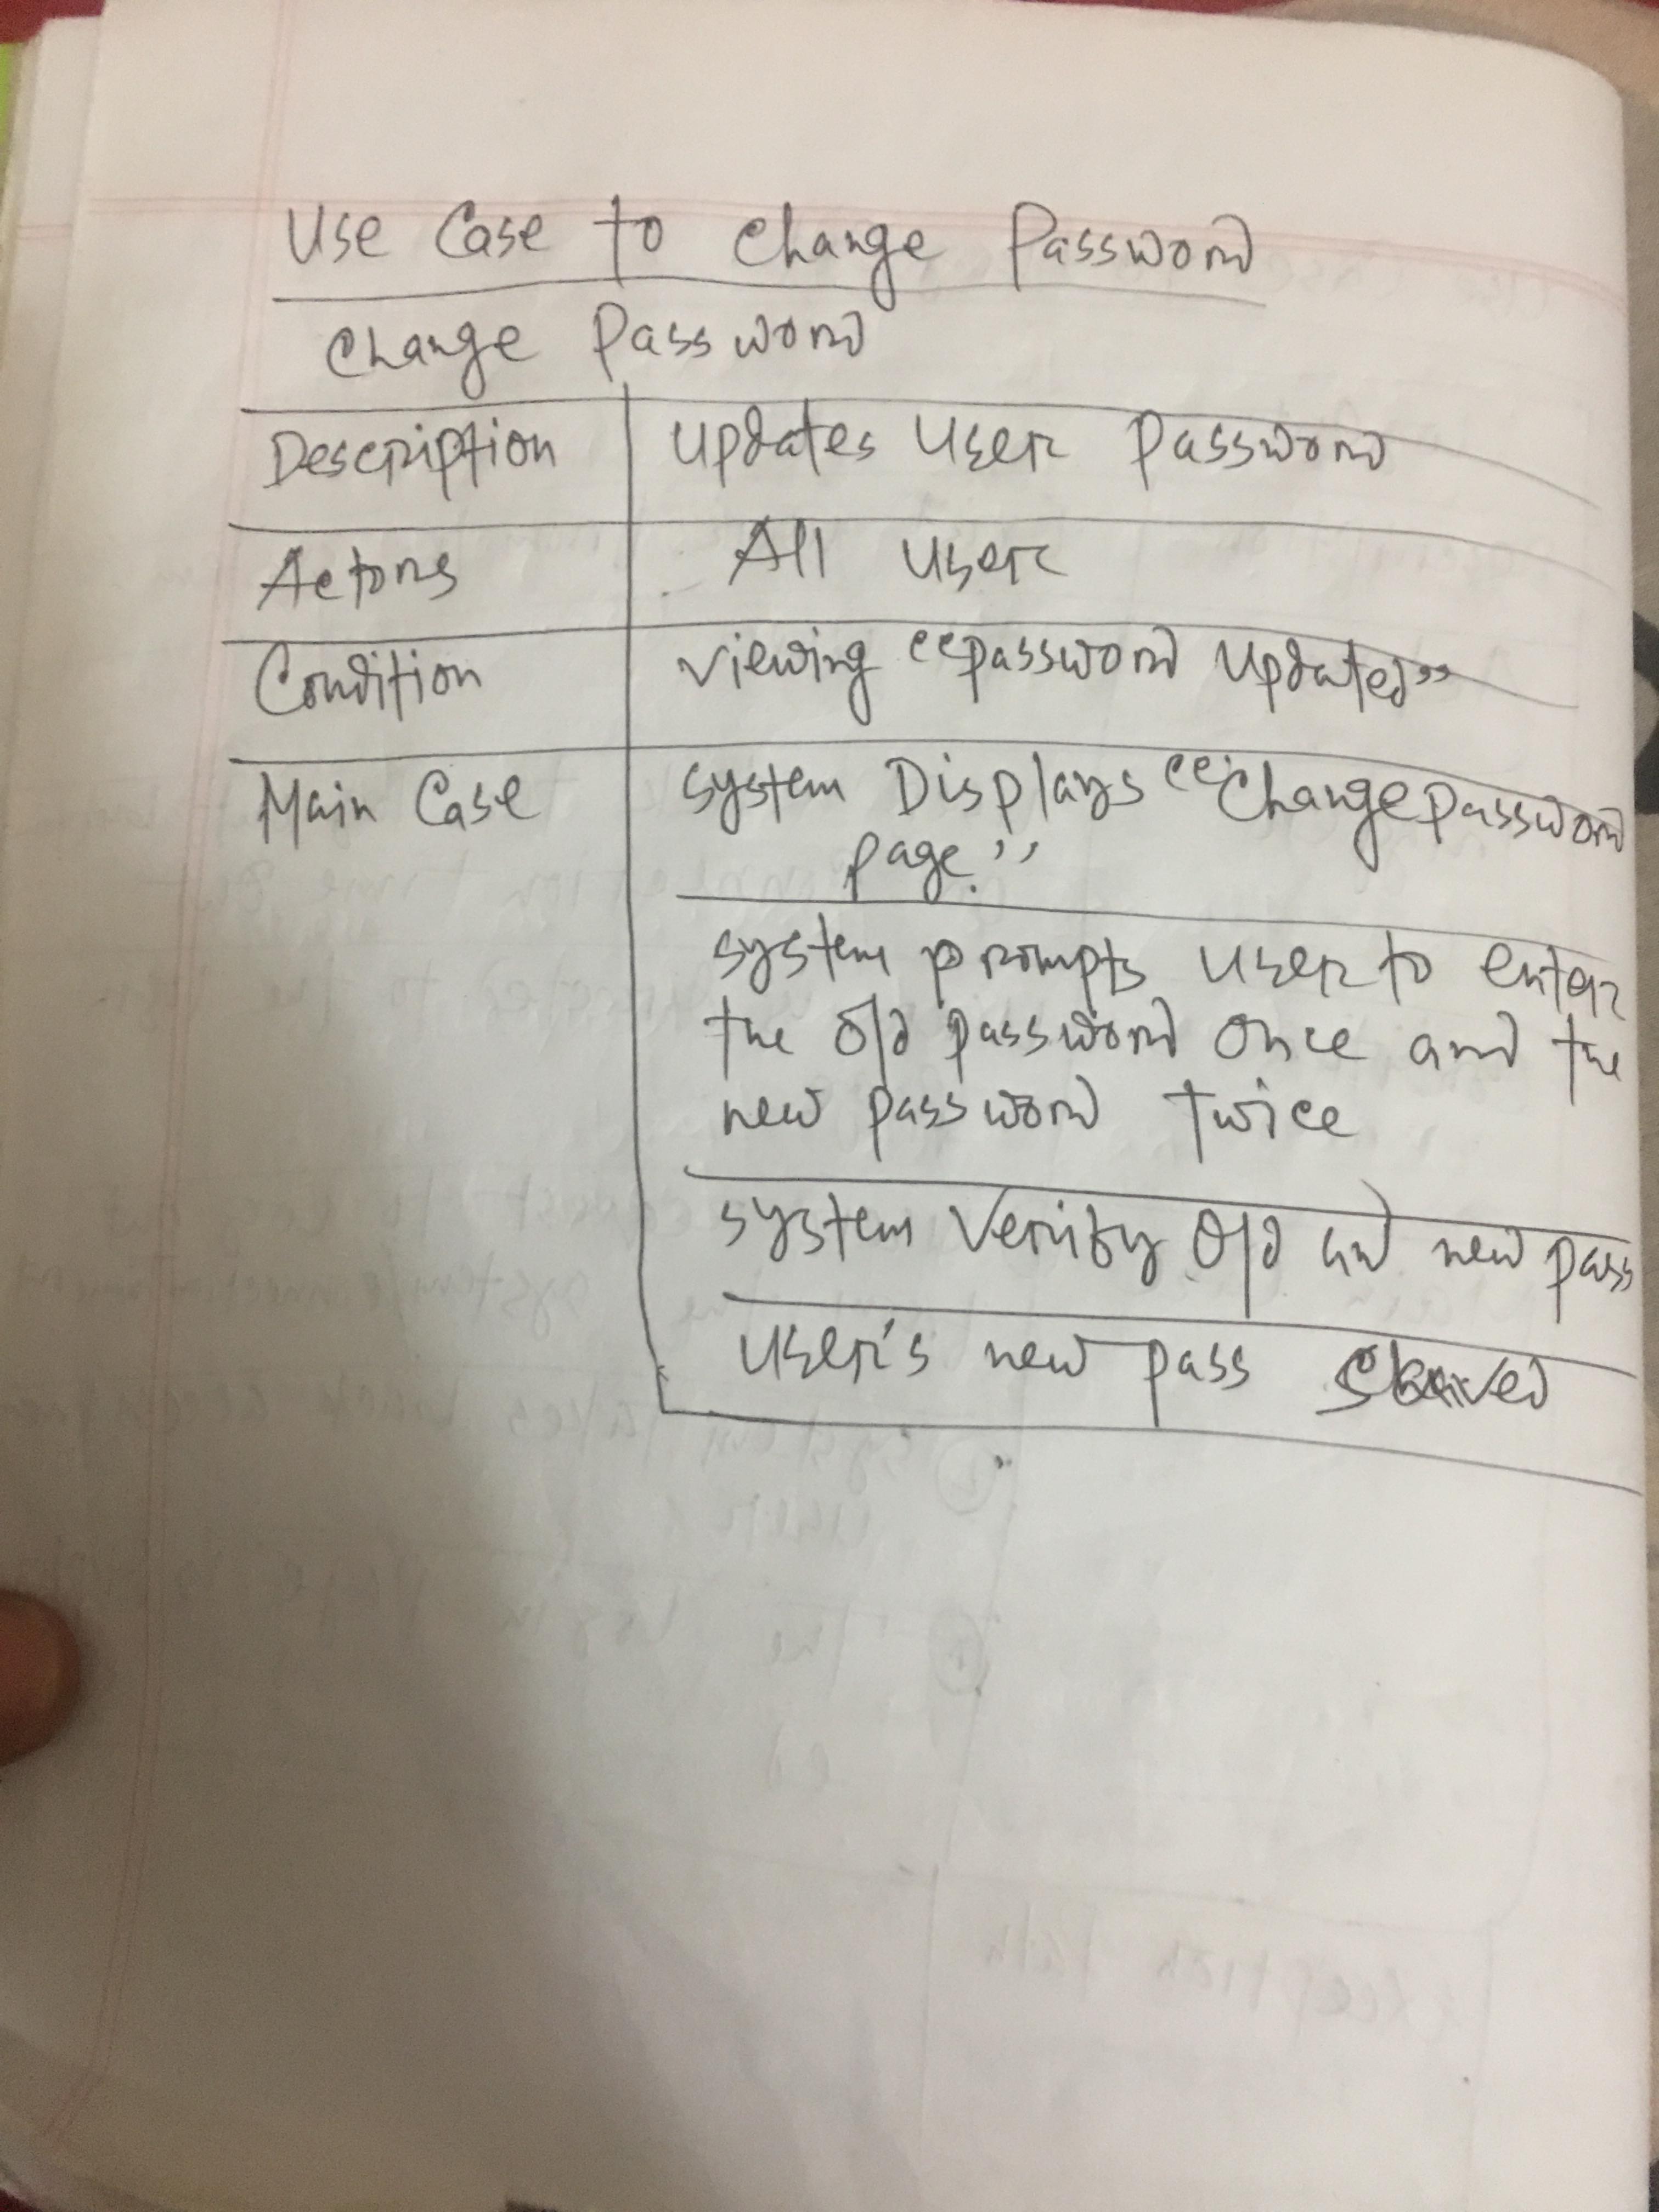 Use Case to Change Password
Change Password
Description Updates User Password
Actors All User
Condition Viewing "password Updated"
Main Case System Displays "Change password
page."
System prompts user to enter
the old password once and the
new password twice
System Verify old and new pass
User's new pass Saved